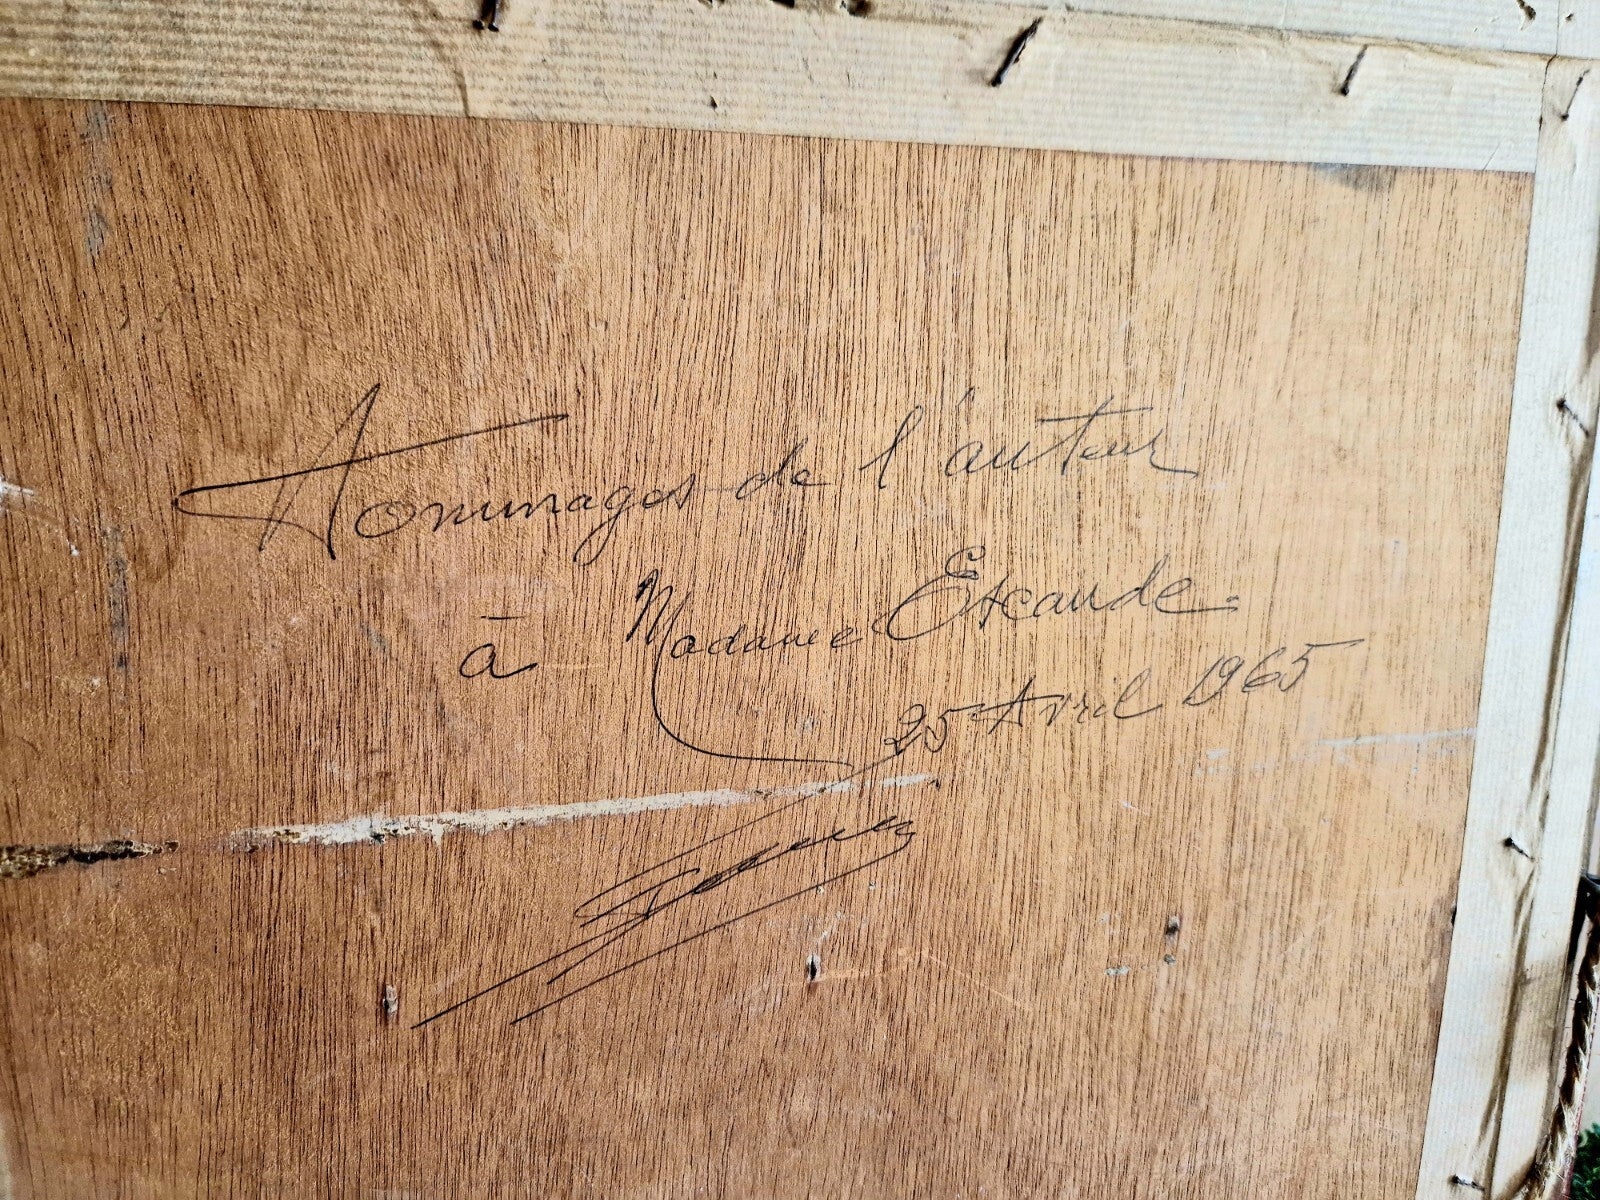 Hommages de l'auteur
à Madame Escande
25 Avril 1965